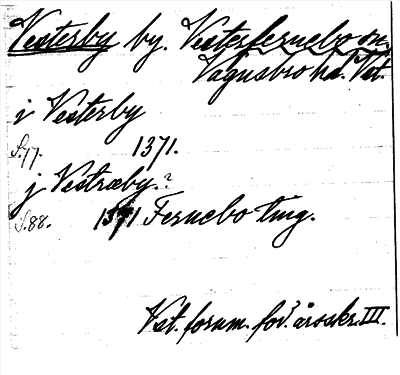 Vesterby by. Västerfernebo sn.
Vagnsbro hd. Vst.
i Vesterby
S.77. 1371.
j Vestræby.?
S.88. 1371 Fernebo ting.
Vst. fornm. för. årsskr. III.